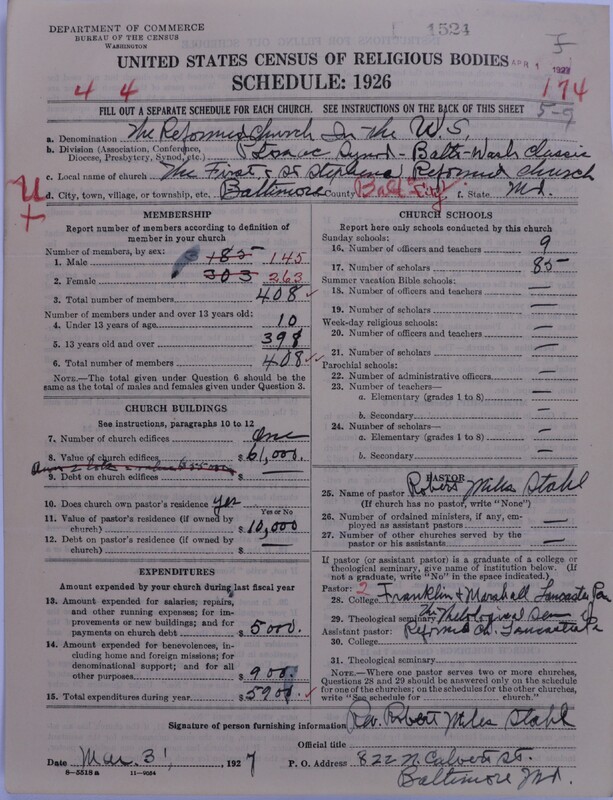 DEPARTMENT OF COMMERCE
BUREAU OF THE CENSUS
WASHINGTON
1524
APR 1 1927
UNITED STATES CENSUS OF RELIGIOUS BODIES
4 4
SCHEDULE: 1926
174
FILL OUT A SEPARATE SCHEDULE FOR EACH CHURCH. SEE INSTRUCTIONS ON THE BACK OF THIS SHEET
5-9
a. Denomination The Reformed Church In the U.S.
b. Division (Association, Conference, Diocese, Presbytery, Synod, etc.) Potomac Synod - Balto-Wash classic
c. Local name of church The First & St Stephens Reformed Church
d. City, town, village, or township, etc. Baltimore County Balt City f. State Md.
MEMBERSHIP
Report number of members according to definition of
member in your church
Number of members, by sex:
1. Male 185 145
2. Female 303 263
3. Total number of members 408
Number of members under and over 13 years old:
4. Under 13 years of age 10
5. 13 years old and over 398
6. Total number of members 408
NOTE.—The total given under Question 6 should be the
same as the total of males and females given under Question 3.
CHURCH BUILDINGS
See instructions, paragraphs 10 to 12
7. Number of church edifices One
8. Value of church edifices $61,000.
9. Debt on church edifices $ —
10. Does church own pastor's residence? yes
Yes or No
11. Value of pastor's residence (if owned by
church) $10,000
12. Debt on pastor's residence (if owned by
church) $ —
EXPENDITURES
Amount expended by your church during last fiscal year
13. Amount expended for salaries, repairs,
and other running expenses; for im-
provements or new buildings; and for
payments on church debt $5000.
14. Amount expended for benevolences, in-
cluding home and foreign missions; for
denominational support; and for all
other purposes $900
15. Total expenditures during year $5900.
CHURCH SCHOOLS
Report here only schools conducted by this church
Sunday schools:
16. Number of officers and teachers 9
17. Number of scholars 85
Summer vacation Bible schools:
18. Number of officers and teachers —
19. Number of scholars —
Week-day religious schools:
20. Number of officers and teachers —
21. Number of scholars —
Parochial schools:
22. Number of administrative officers —
23. Number of teachers—
a. Elementary (grades 1 to 8) —
b. Secondary —
24. Number of scholars—
a. Elementary (grades 1 to 8) —
b. Secondary —
PASTOR
25. Name of pastor Robert Miles Stahl
(If church has no pastor, write "None")
26. Number of ordained ministers, if any, em-
ployed as assistant pastors —
27. Number of other churches served by the
pastor or his assistants —
If pastor (or assistant pastor) is a graduate of a college or
theological seminary, give name of institution below. (If
not a graduate, write "No" in the space indicated.)
Pastor: 2
28. College Franklin & Marshall Lancaster Pa
29. Theological seminary The Theological Sem of
Assistant pastor: Reformed Ch. Lancaster Pa
30. College
31. Theological seminary
NOTE.—Where one pastor serves two or more churches,
Questions 28 and 29 should be answered only on the schedule
for one of the churches; on the schedules for the other churches,
write "See schedule for church."
Signature of person furnishing information Rev. Robert Miles Stahl
Official title
Date Mar. 31, 1927
P. O. Address 822 N Calvert St.
Baltimore Md.
8—5518 a 11-9054